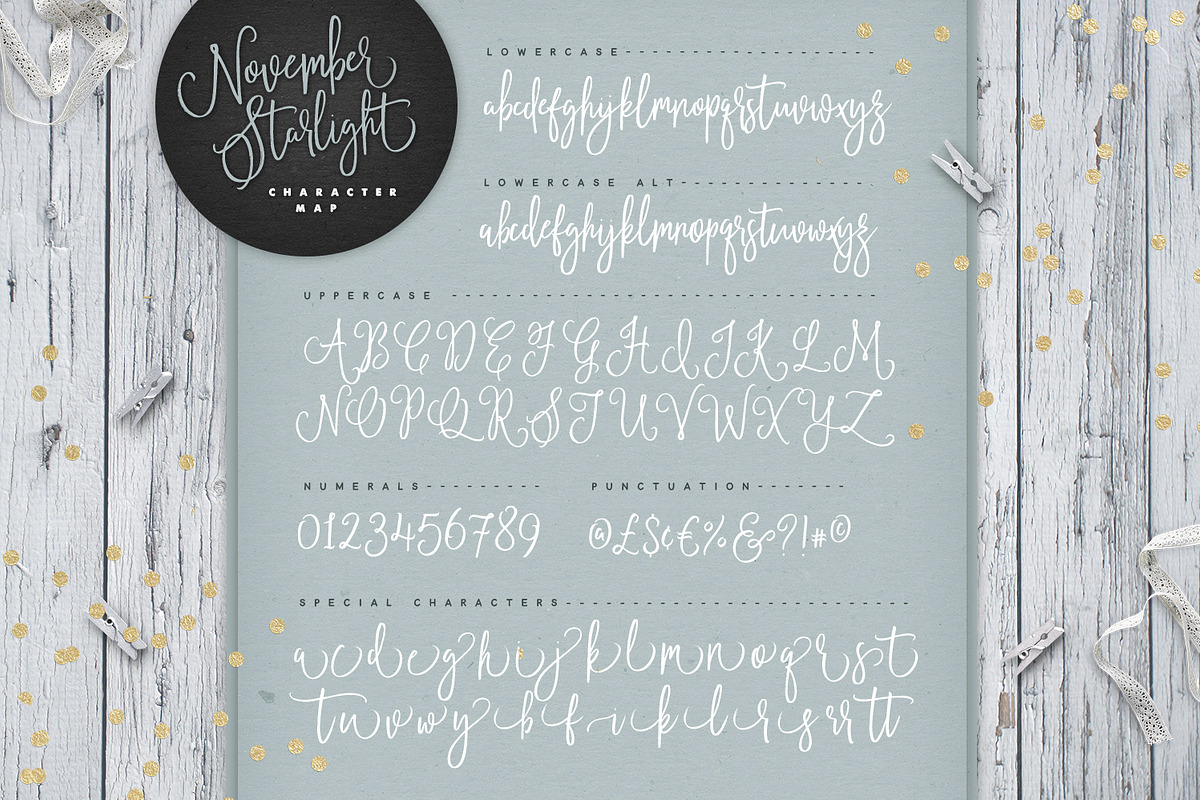 November
Starlight
CHARACTER
MAP
LOWERCASE
abcdefghijklmnopqrstuvwxyz
LOWERCASE ALT
abcdefghijklmnopqrstuvwxyz
UPPERCASE
ABCDEFGHIJKLM
NOPQRSTUVWXYZ
NUMERALS
0123456789
PUNCTUATION
@£$¢€%&?!#©
SPECIAL CHARACTERS
acdeghijklmnoqrst
tuvwy b f i k l r s rr tt